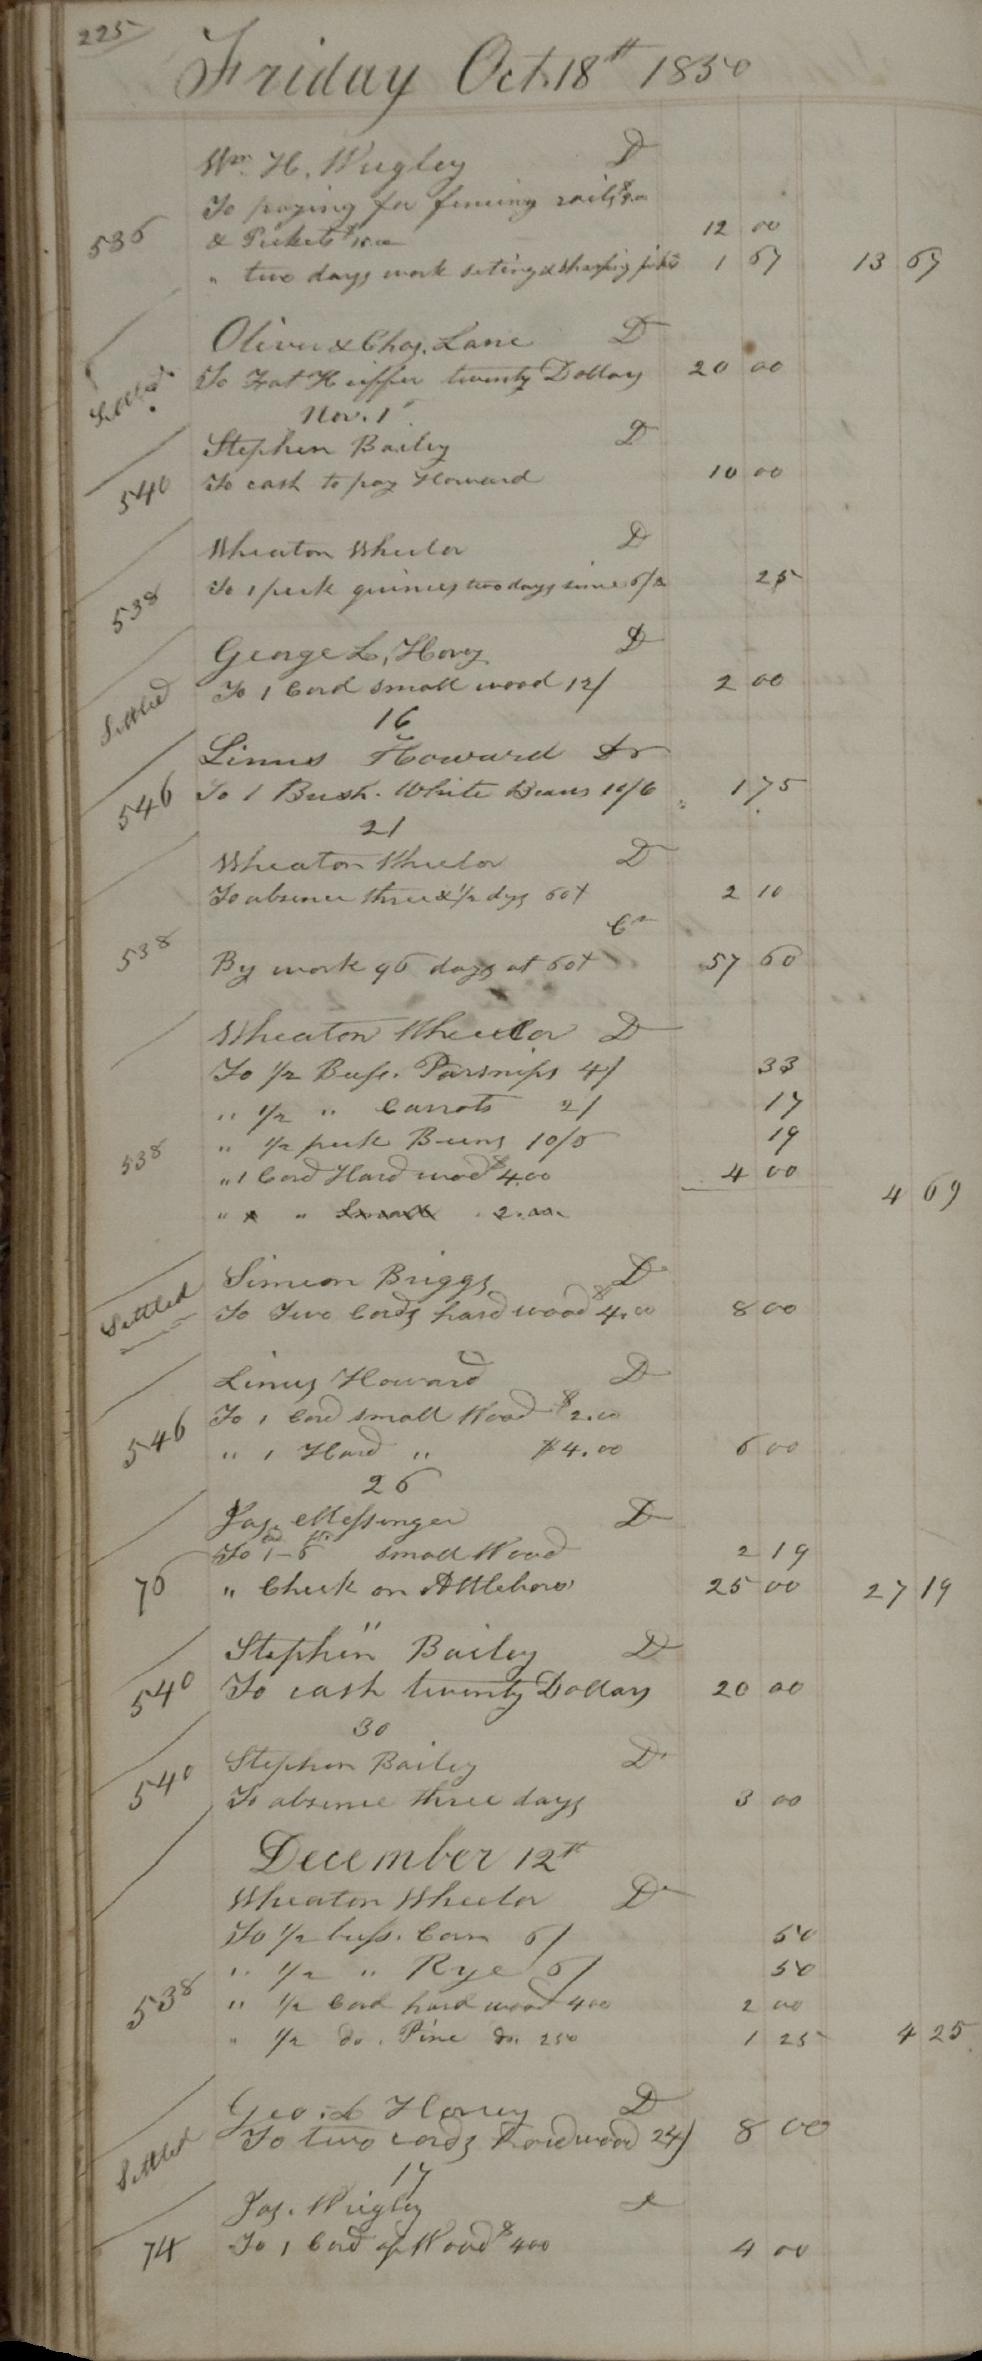 225
Friday Oct. 18th 1850
Wm. H. Wrigley D
To paying for fencing rails
536 & Pickets $ 12 00
" two days work seting & sharping 1 67 13 67
Oliver & Chas. Lane D
Settled To Fat Heiffer twenty Dollars 20 00
Nov. 1
Stephen Bailey D
540 To cash to pay Howard 10 00
Wheaton Wheelor D
538 To 1 peck quinces two days since 25
George L. Hovey D
Settled To 1 Cord small wood 12/ 2 00
16
Linus Howard Dr
546 To 1 Bush. White Beans 10/6 1 75
21
Wheaton Wheelor D
To absence three & 1/2 dys 60+ 2 10
Cr
538 By work 96 days at 60+ 57 60
Wheaton Wheelor D
To 1/2 Bush. Parsnips 4/ 33
" 1/2 " Carrots 2/ 17
538 " 1/2 peck Beens 10/6 19
" 1 Cord Hard wood $4.00 4 00 4 69
" 1 " Small 2.00
Simeon Briggs D
Settled To Two Cords hard wood $4.00 8 00
Linus Howard D
546 To 1 Cord small Wood $2.00
" 1 Hard " $4.00 6 00
26
Jas. Messenger D
To 1 - 6 small Wood 2 19
76 " Check on Attleboro 25 00 27 19
"
Stephen Bailey D
540 To cash twenty Dollars 20 00
30
Stephen Bailey D
540 To absence three days 3 00
December 12th
Wheaton Wheelor D
To 1/2 bush. Corn 6/ 50
" 1/2 " Rye 6/ 50
538 " 1/2 Cord hard wood 400 2 00
" 1/2 do. Pine do. 250 1 25 4 25
Geo. L Hovey D
Settled To two cords hardwood 24/ 8 00
17
Jas. Wrigley D
74 To 1 Cord of Wood $400 4 00